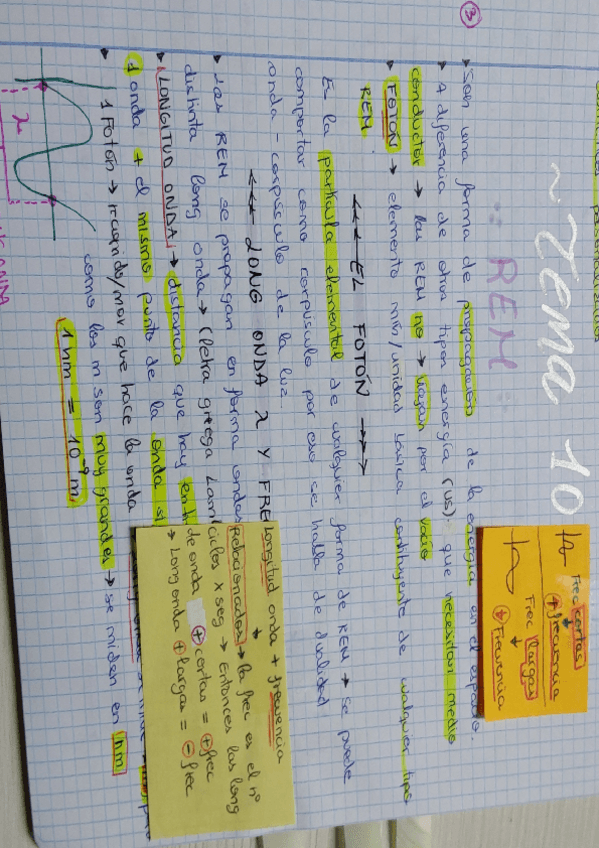 ~ Tema 10
③
∵ REM ∵
▸ Son una forma de propagación de la energía en el espacio.
▸ A diferencia de otros tipos energía (US) que necesitan medio
conductor → las REM no → viajan por el vacío
▸ FOTÓN → elemento min/unidad básica constituyente de cualquier tipo
REM
<<< EL FOTÓN >>>
Es la partícula elemental de cualquier forma de REM → se puede
comportar como corpúsculo por eso se habla de dualidad
onda - corpúsculo de la luz.
<<< LONG ONDA λ Y FRE
▸ Las REM se propagan en forma ondas
distinta long onda → (letra griega Lam
▸ LONGITUD ONDA → distancia que hay ent
1 onda + el mismo punto de la onda si
▸ 1 Fotón → recorrido/mov que hace la onda
como los m son muy grandes → se miden en nm
1 nm = 10⁻⁹ m
λ
Frec cortas
⊕ frecuencia
Frec largas
⊖ Frecuencia
Longitud onda + frecuencia
Relacionados → la frec es el nº
ciclos x seg → entonces las long
de onda ⊕ cortas = ⊕ frec
→ Long onda ⊕ largas = ⊖ frec